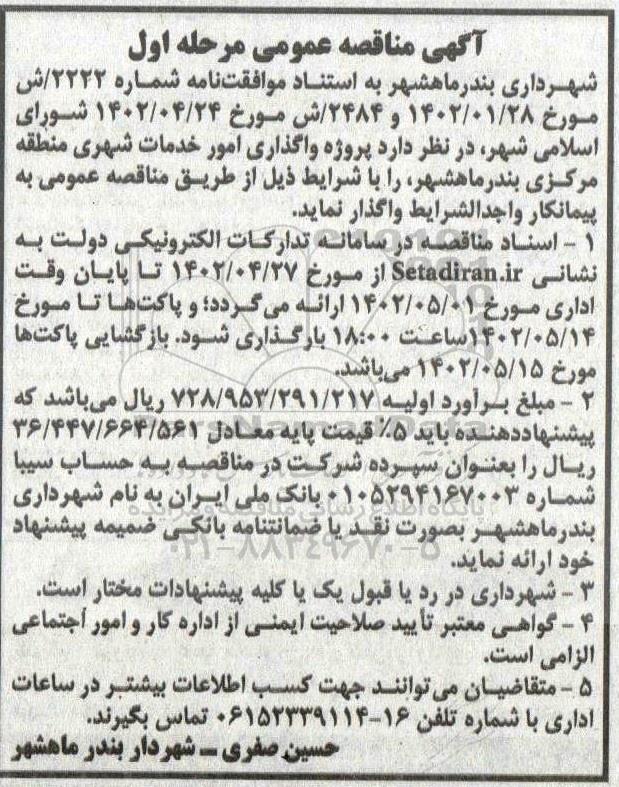 آگهی مناقصه عمومی مرحله اول
شهرداری بندرماهشهر به استناد موافقت‌نامه شماره ۲۲۲۲/ش
مورخ ۱۴۰۲/۰۱/۲۸ و ۲۴۸۴/ش مورخ ۱۴۰۲/۰۴/۲۴ شورای
اسلامی شهر، در نظر دارد پروژه واگذاری امور خدمات شهری منطقه
مرکزی بندرماهشهر، را با شرایط ذیل از طریق مناقصه عمومی به
پیمانکار واجدالشرایط واگذار نماید.
۱ - اسناد مناقصه در سامانه تدارکات الکترونیکی دولت به
نشانی Setadiran.ir از مورخ ۱۴۰۲/۰۴/۲۷ تا پایان وقت
اداری مورخ ۱۴۰۲/۰۵/۰۱ ارائه می‌گردد؛ و پاکت‌ها تا مورخ
۱۴۰۲/۰۵/۱۴ساعت ۱۸:۰۰ بارگذاری شود. بازگشایی پاکت‌ها
مورخ ۱۴۰۲/۰۵/۱۵ می‌باشد.
۲ - مبلغ برآورد اولیه ۷۲۸/۹۵۳/۲۹۱/۲۱۷ ریال می‌باشد که
پیشنهاددهنده باید ۵٪ قیمت پایه معادل ۳۶/۴۴۷/۶۶۴/۵۶۱
ریال را بعنوان سپرده شرکت در مناقصه به حساب سیبا
شماره ۰۱۰۵۲۹۴۱۶۷۰۰۳ بانک ملی ایران به نام شهرداری
بندرماهشهر بصورت نقد یا ضمانتنامه بانکی ضمیمه پیشنهاد
خود ارائه نماید.
۳ - شهرداری در رد یا قبول یک یا کلیه پیشنهادات مختار است.
۴ - گواهی معتبر تأیید صلاحیت ایمنی از اداره کار و امور اجتماعی
الزامی است.
۵ - متقاضیان می‌توانند جهت کسب اطلاعات بیشتر در ساعات
اداری با شماره تلفن ۱۶-۰۶۱۵۲۳۳۹۱۱۴ تماس بگیرند.
حسین صفری ــ شهردار بندر ماهشهر